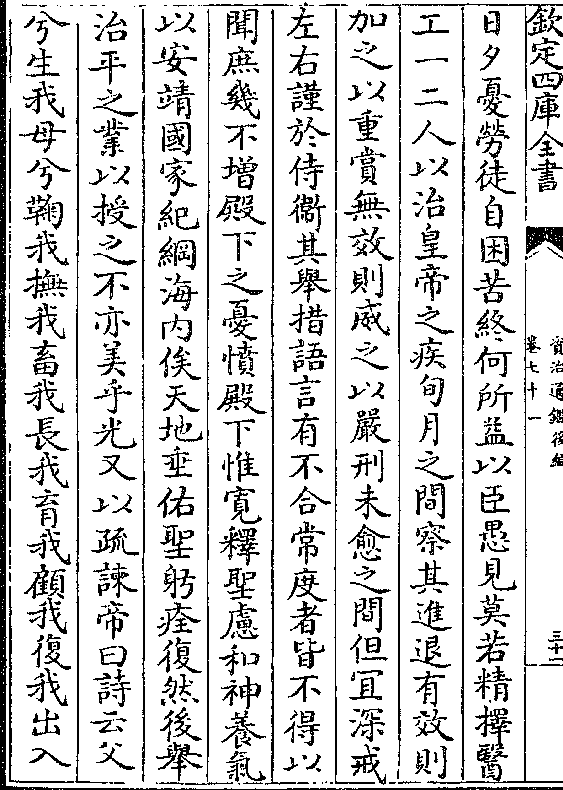 欽定四庫全書
資治通鑑後編
卷七十一
三十二
日夕憂勞徒自困苦終何所益以臣愚見莫若精擇醫
工一二人以治皇帝之疾旬月之間察其進退有效則
加之以重賞無效則威之以嚴刑未愈之間但宜深戒
左右謹於侍衞其舉措語言有不合常度者皆不得以
聞庶幾不增殿下之憂憤殿下惟寛釋聖慮和神養氣
以安靖國家紀綱海内俟天地垂佑聖躬痊復然後舉
治平之業以授之不亦美乎光又以疏諫帝曰詩云父
兮生我母兮鞠我撫我畜我長我育我顧我復我出入